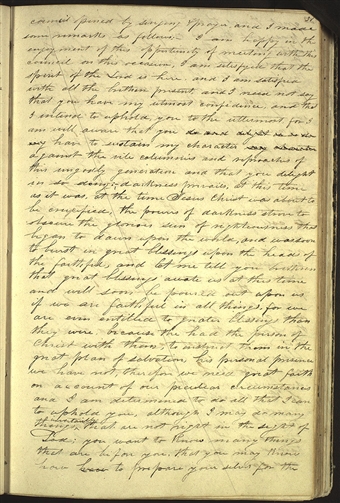 council opened by singing & prayer and I made
some remarks as follows. I am happy in the
enjoyment of this opportunity of meeting with this
council on this occasion, I am satisfyed that the
spirit of the Lord is here and I am satisfied
with all the brethren present, and I need not say
that you have my utmost confidence, and that
I intend to uphold, you to the uttermost for I
am well aware that you do and delight in so do-
ing have to sustain my character
against the vile calumnies and reproaches of
this ungodly generation and that you delight
in so doing, darkness prevails, at this time
as it was, at the time Jesus Christ was about to
be crucified, the powers of darkness strove to
obscure the glorious sun of righteousness that
began to dawn upon the world, and was soon
to burst in great blessings upon the heads of
the faithful, and let me tell you brethren
that great blessings awate us at this time
and will soon be poured out upon us
if we are faithful in all things, for we
are even entitled to greater blessings than
they were, because the had the person of
Christ with them, to instruct them in the
great plan of salvation, his personal presence
we have not, therefore we need great faith
on account of our peculiar circumstances
and I am determined to do all that I can
to uphold you, although I may do many
things inavertently that are not right in the sight of
God; you want to know many things
that are before you, that you may know
how to prepare your selves for the